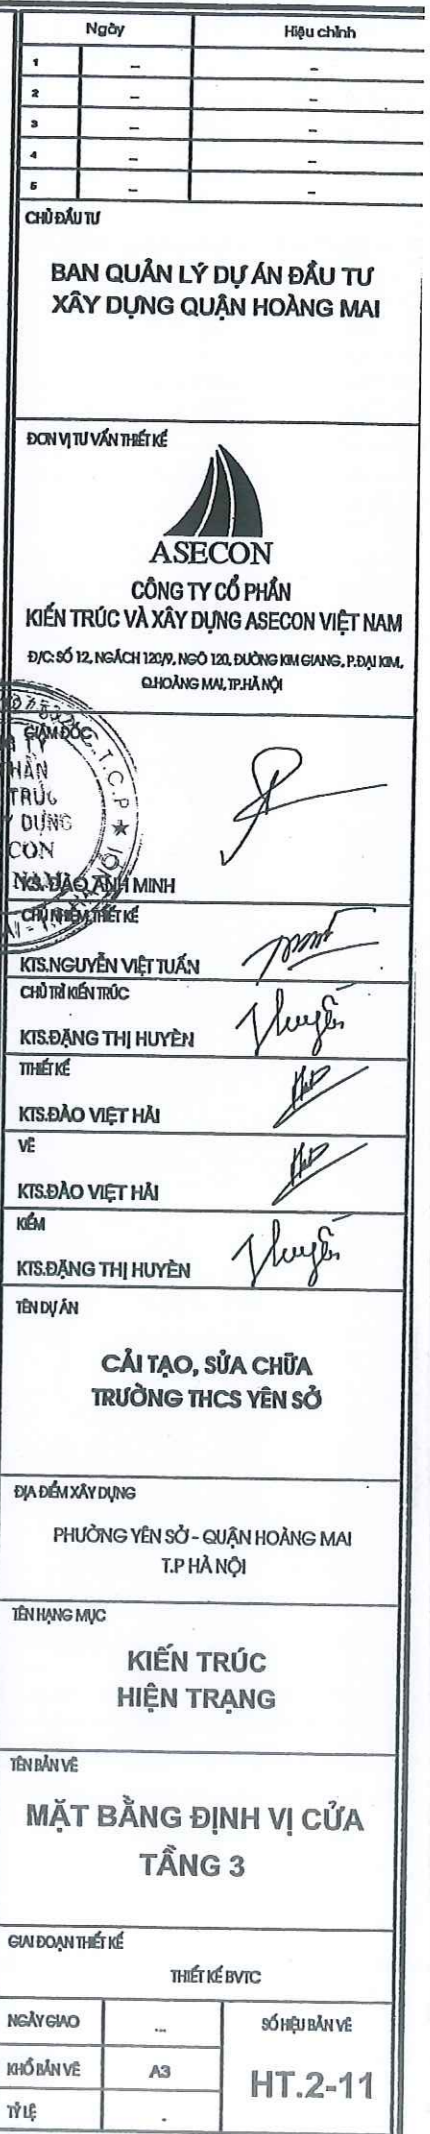 Ngày Hiệu chỉnh
1 – –
2 – –
3 – –
4 – –
5 – –
CHỦ ĐẦU TƯ
BAN QUẢN LÝ DỰ ÁN ĐẦU TƯ
XÂY DỰNG QUẬN HOÀNG MAI
ĐƠN VỊ TƯ VẤN THIẾT KẾ
ASECON
CÔNG TY CỔ PHẦN
KIẾN TRÚC VÀ XÂY DỰNG ASECON VIỆT NAM
Đ/C: SỐ 12, NGÁCH 120/9, NGÕ 120, ĐƯỜNG KIM GIANG, P.ĐẠI KIM,
Q.HOÀNG MAI, TP.HÀ NỘI
GIÁM ĐỐC
KS. ĐÀO ANH MINH
CHỦ NHIỆM THIẾT KẾ
KTS.NGUYỄN VIỆT TUẤN
CHỦ TRÌ KIẾN TRÚC
KTS.ĐẶNG THỊ HUYÈN
THIẾT KẾ
KTS.ĐÀO VIỆT HẢI
VẼ
KTS.ĐÀO VIỆT HẢI
KIỂM
KTS.ĐẶNG THỊ HUYÈN
TÊN DỰ ÁN
CẢI TẠO, SỬA CHỮA
TRƯỜNG THCS YÊN SỞ
ĐỊA ĐIỂM XÂY DỰNG
PHƯỜNG YÊN SỞ - QUẬN HOÀNG MAI
T.P HÀ NỘI
TÊN HẠNG MỤC
KIẾN TRÚC
HIỆN TRẠNG
TÊN BẢN VẼ
MẶT BẰNG ĐỊNH VỊ CỬA
TẦNG 3
GIAI ĐOẠN THIẾT KẾ
THIẾT KẾ BVTC
NGÀY GIAO ... SỐ HIỆU BẢN VẼ
KHỔ BẢN VẼ A3 HT.2-11
TỶ LỆ .